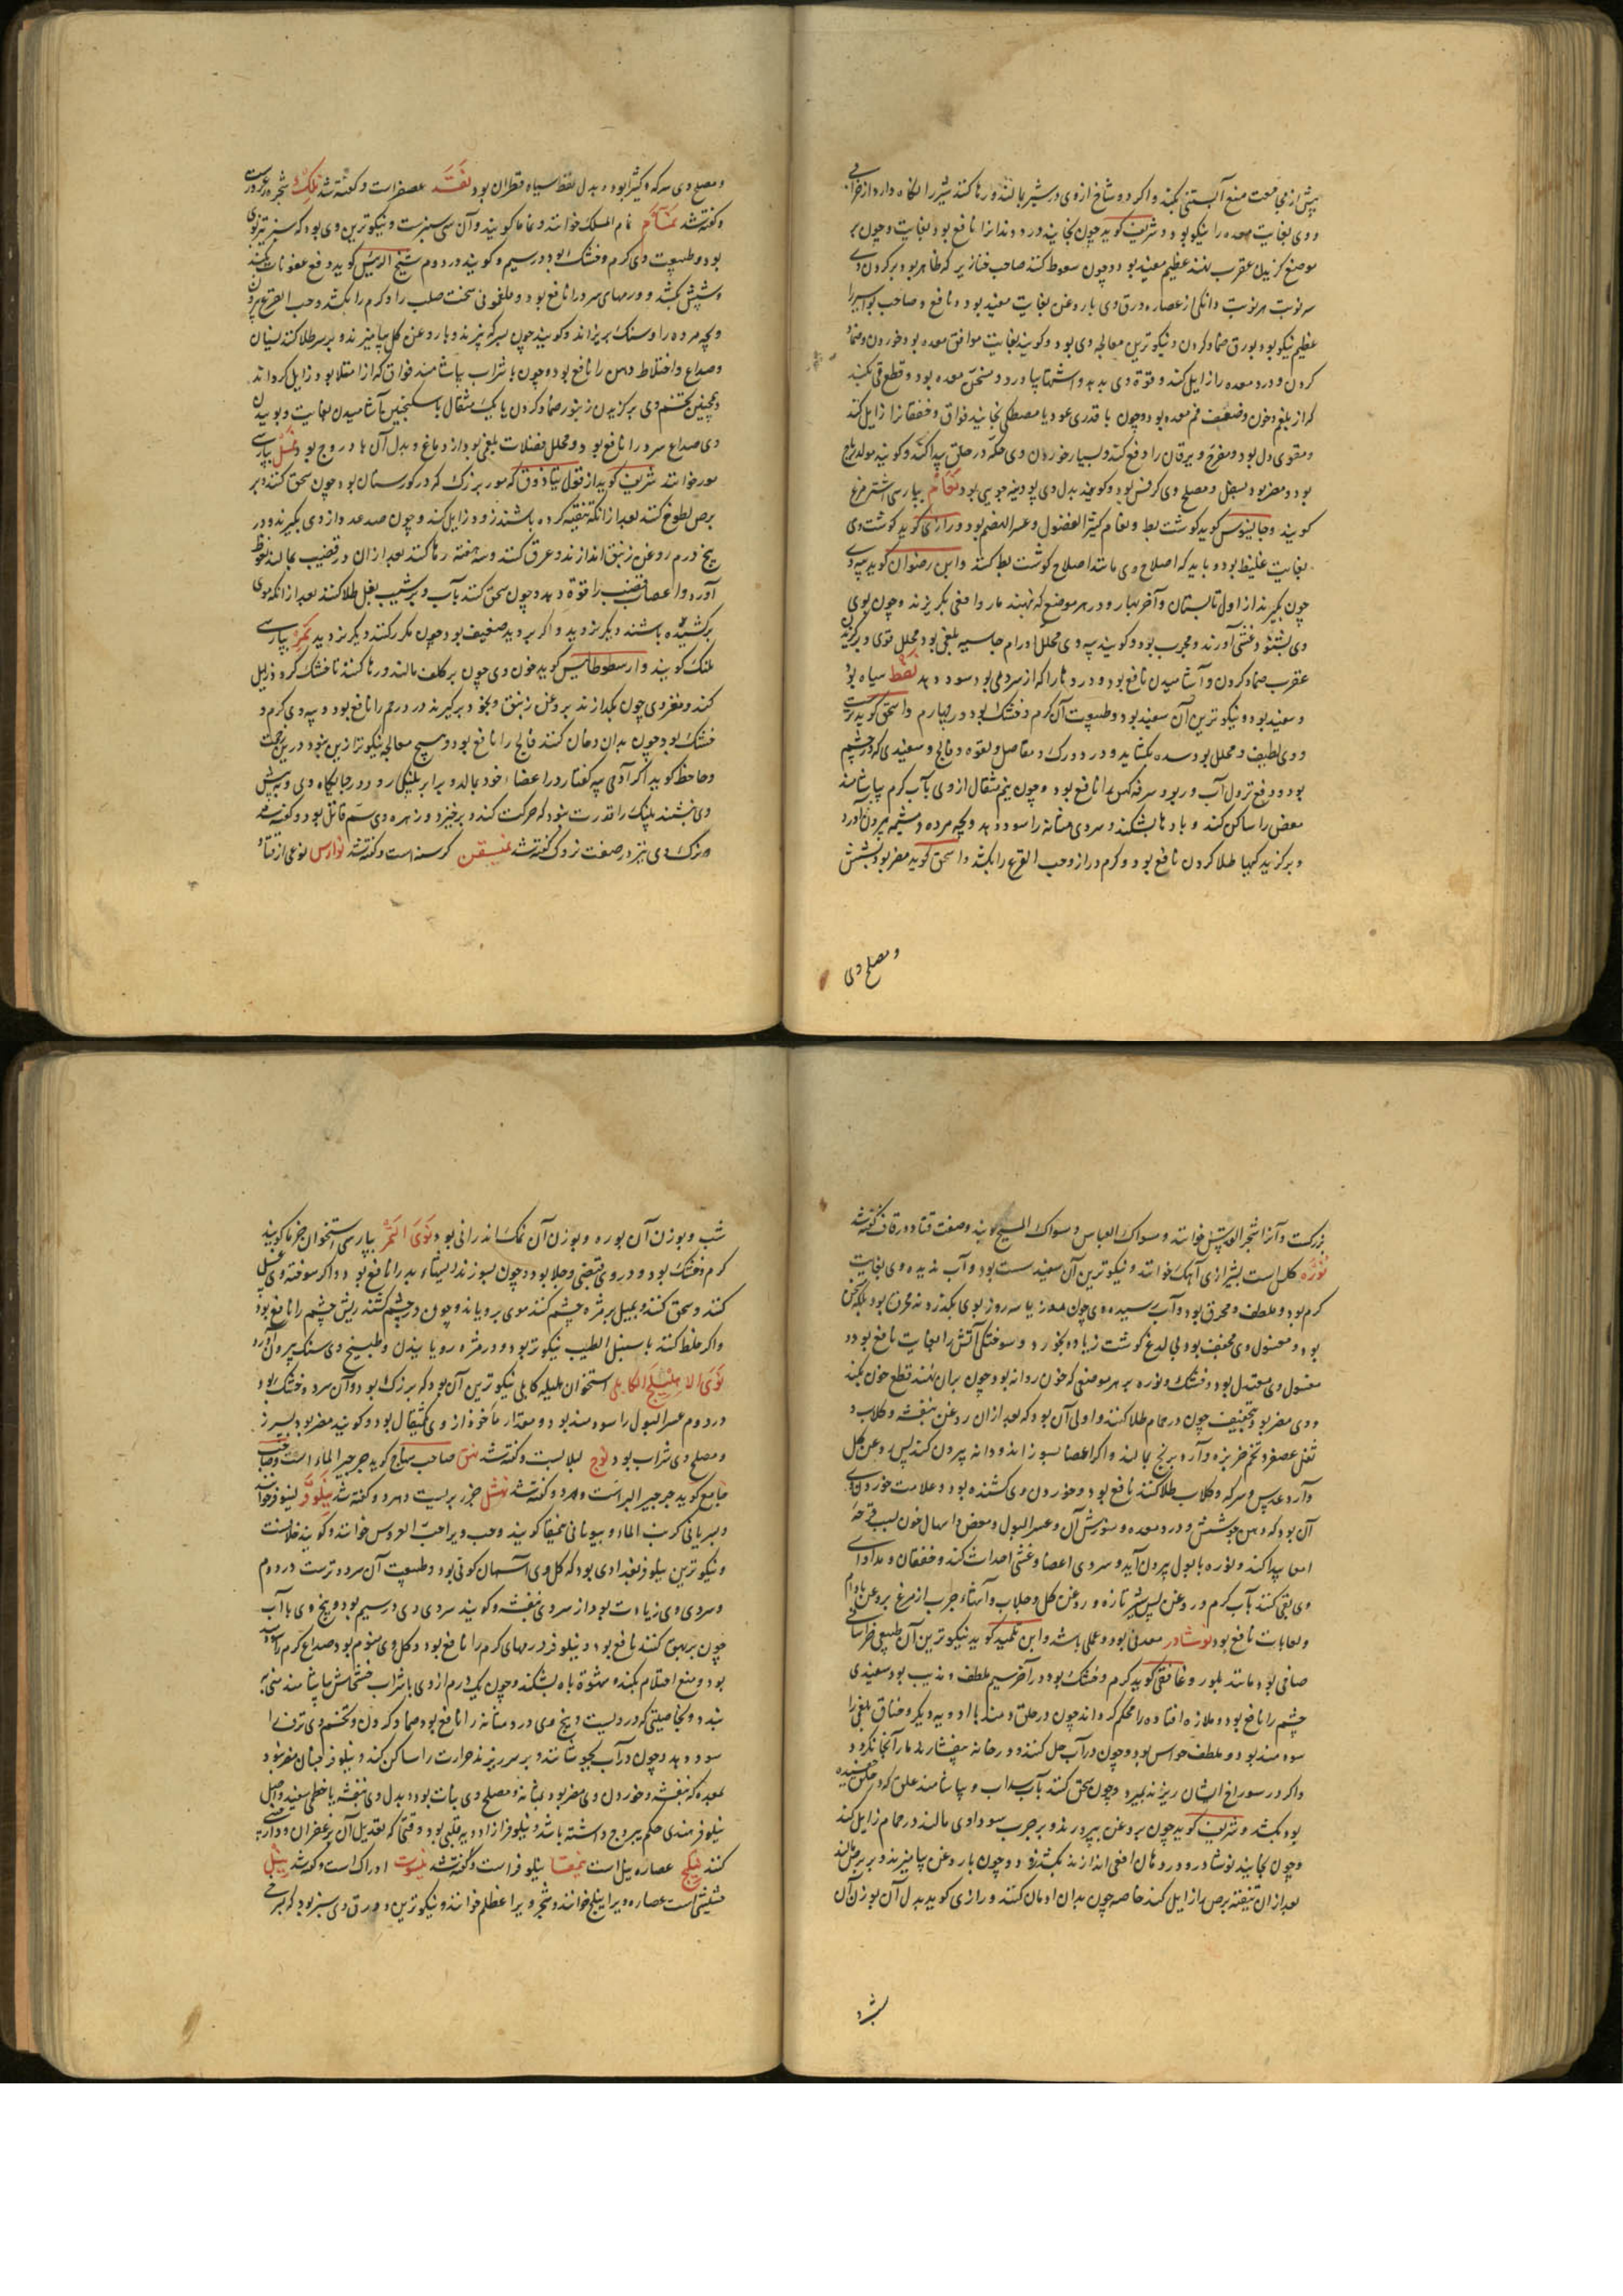 پیش از مجامعت منع آبستنی بکند و اگر دو شاخ از وی در شیر بمالند و رها کنند شیر را نگاه دارد از
و وی بغایت معده را نیکو بود و شریف گوید چون بخایند درد دندانرا نافع بود بغایت و چون بر
موضع گزیدن عقرب نهند عظیم مفید بود و چون سعوط کنند صاحب خنازیر که ظاهر بود بر گردن وی
سه نوبت هر نوبت دانگی از عصاره ورق وی با روغن بغایت مفید بود و نافع و صاحب بواسیر را
عظیم نیکو بود بورق ضماد کردن و نیکوترین معالجه وی بود و گویند بغایت موافق معده بود خوردن و ضماد
کردن و درد معده را زایل کند و قوة وی بدهد و اشتها بیاورد و مسخن معده بود و قطع قی بکند
که از بلغم و خون و ضعف فم معده بود و چون با قدری عود یا مصطکی بخایند فواق و خفقانرا زایل کند
و مقوی دل بود و مفرح و یرقان را دفع کند و بسیار خوردن وی حکه در حلق پیدا کند و گویند مولد ریاح
بود و مضر بود بسفل و مصلح وی کرفس بود و گویند بدل وی پودینه جویی بود نعام بپارسی اشتر مرغ
گویند و جالینوس گوید گوشت بط و نعام کثیر الفضول و عسر الهضم بود و رازی گوید گوشت وی
بغایت غلیظ بود و باید که اصلاح وی مانند اصلاح گوشت بط کنند و ابن رضوان گوید پیه وی
چون بگیرند از اول تابستان و آخر بهار و در هر موضع که نهند مار و افعی بگریزند و چون بوی
وی بشنود غشی آورند و مجرب بود و گویند پیه وی محلل اورام جاسیه بلغمی بود محلل قوی و بر گزیدگی
عقرب ضماد کردن و آشامیدن نافع بود و دردها را که از سردی بود سود دهد نفط سیاه بود
و سفید بود و نیکوترین آن سفید بود و طبیعت آن گرم و خشک بود در چهارم و اسحق گوید
و وی لطیف و محلل بود سده بگشاید و درد ورک و مفاصل و لقوه و فالج و سفیدی که در چشم
بود و دفع نزول آب و ربو و سرفه کهن را نافع بود و چون نیم مثقال از وی بآب گرم بیاشامند
مغص را ساکن کند و بادها بشکند و سردی مثانه را سود دهد و بچه مرده و مشیمه بیرون آورد
و بر گزیدگیها طلا کردن نافع بود و کرم دراز و حب القرع را بکشد و اسحق گوید مضر بود بشش
و مصلح وی
و مصلح وی سرکه و کثیرا بود و بدل نفط سیاه قطران بود نغت عصفراست و گفته شد نلک شجره زعرورست
و گفته شد نمام نمام الملک خوانند و نماما گویند و آن سیسنبرست و نیکوترین وی بود که سبز تیزبوی
بود و طبیعت وی گرم و خشک بود در سیم و گویند در دوم شیخ الرئیس گوید دفع عفونات بکند
و شپش بکشد و ورمهای سرد را نافع بود و ملغمونی سخت صلب را و کرم را بکشد و حب القرع بیرون
و بچه مرده را و سنگ بریزاند و گویند چون بسرکه بپزند و با روغن گل بیامیزند و بر سر طلا کنند نسیان
و صداع و اختلاط ذهن را نافع بود و چون با شراب بیاشامند فواق که از امتلا بود زایل گرداند
و همچنین تخم وی بر گزیدن زنبور ضماد کردن با یک مثقال باسکنجبین آشامیدن بغایت و بوییدن
وی صداع سرد را نافع بود و محلل فضلات بلغمی بود از دماغ و بدل آن مادروج بود نمل بپارسی
مور خوانند شریف گوید از قول بیاذوق که مور بزرگ که در گورستان بود چون سحق کنند و بر
برص لطوخ کنند بعد از آنکه تنقیه کرده باشند زود زایل کند و چون صد عدد از وی بگیرند و در
پنج درم روغن زنبق اندازند و غرق کنند و سه هفته رها کنند بعد از آن در قضیب بمالند نعوظ
آورد و اعصاب قضیب را قوة دهد و چون سحق کنند بآب و بر شیب بغل طلا کنند بعد از آنکه موی
برکشیده باشند دیگر نروید و اگر بروید ضعیف بود چون مکرر کنند دیگر نروید نمر بپارسی
پلنگ گویند و ارسطوطالیس گوید خون وی چون بر کلف مالند و رها کنند تا خشک گردد زایل
کند و مغز وی چون بگدازند بروغن زنبق و بخود برگیرند درد رحم را نافع بود و پیه وی گرم و
خشک بود چون بدان دهان کنند فالج را نافع بود و هیچ معالجه نیکوتر ازین نبود درین زحمت
و جاحظ گوید اگر آدمی پیه کفتار در اعضاء خود بمالد و برابر پلنگی رود و در جایگاه وی و پیش
وی بنشیند پلنگ را قدرت نبود که حرکت کند و برخیزد و زهره وی سم قاتل بود و گفته شد
مرگ وی نیز در صفت زوک گفته شد نمیسقن کرسنه است و گفته شد نوارس نوعی از قتاد
بزرگست و آنرا شجر القدس خوانند و مسواک العباس و مسواک المسیح گویند و صفت قتاد در قاف گفته شد
نوره کلس است بشیرازی آهک خوانند و نیکوترین آن سفید سست بود و آب ندیده وی بغایت
گرم بود و ملطف و محرق بود و آب رسیده وی چون دو روز یا سه روز بوی بگذرد نه محرق بود بلکه مسخن
بود و مغسول وی مجفف بود بی لدغ گوشت زیاده بخورد و سوختگی آتش را بغایت نافع بود و
مغسول وی معتدل بود و خشک و نوره بر هر موضعی که خون روانه بود چون بران نهند قطع خون بکند
و وی مضر بود بتجفیف چون در حمام طلا کنند و اولی آن بود که بعد از آن روغن بنفشه و گلاب و
ثفل عصفر و تخم خربزه و آرد برنج بمالند و اگر اعضا بسوزاند و دانه بیرون کند پس روغن گل
و آرد عدس و سرکه و گلاب طلا کنند نافع بود و خوردن وی کشنده بود و علامت خوردن وی
آن بود که دهن جوشش و درد معده و سوزش آن و عسر البول و مغص و اسهال خون بسبب قرحه
امعا پیدا کند و نوره با بول بیرون آید و سردی اعضا و غشی احداث کند و خفقان و مداوای
وی بقی کنند بآب گرم و روغن پس شیر تازه و روغن گل و جلاب و آشهاء چرب از مرغ بروغن بادام
و لعابات نافع بود نوشادر معدنی بود و عملی باشد و ابن تلمیذ گوید نیکوترین آن طبیعی خراسانی
صافی بود مانند بلور و غافقی گوید گرم و خشک بود در آخر سیم ملطف و مذیب بود سفیدی
چشم را نافع بود و ملازه افتاده را محکم گرداند چون در حلق دمند با ادویه دیگر و خناق بلغمی را
سودمند بود و ملطف حواس بود و چون در آب حل کنند و در خانه بیفشانند مار آنجا نگردد
و اگر در سوراخ ایشان ریزند بمیرد و چون سحق کنند بآب سداب و بیاشامند علق که در حلق چسبیده
بود بکشد و شریف گوید چون بروغن بپرورند و بر جرب سوداوی مالند در حمام زایل کند
و چون بخایند نوشادر و در دهان افعی اندازند بکشد زود و چون با روغن بیامیزند و بر برص مالند
بعد از آن تنقیه برص را زایل کند خاصه چون بدان ادمان کنند و رازی گوید بدل آن بوزن آن
شب و بوزن آن بوره و بوزن آن نمک اندرانی بود نوی التمر بپارسی استخوان خرما گویند
گرم و خشک بود و در وی قبضی و جلا بود و چون بسوزند ریشهاء بد را نافع بود و اگر سوخته وی غسل
کنند و سحق کنند و بمیل بر مژه چشم کنند موی برویاند و چون در چشم کشند ریش چشم را نافع بود
و اگر خلط کنند با سنبل الطیب نیکوتر بود و در مژه رویانیدن و طبیخ وی سنگ بیرون آورد
نوی الاهلیلج الکابلی استخوان هلیله کابلی نیکوترین آن بود که بزرگ بود و آن سرد و خشک بود
در دوم عسر البول را سودمند بود و مقدار ماخوذ از وی یکمثقال بود و گویند مضر بود بسپرز
و مصلح وی شراب بود نوج لبلابست و گفته شد نهق صاحب منهاج گوید جرجیر الماء است و صاحب
جامع گوید جرجیر البراست و هر دو گفته شد نهشل جزر بریست و هر دو گفته شد نیلوفر نیلوفر خوانند
و سریانی کرنب الماء و بیونانی نمیفا گویند و حب ویرا حب العروس خوانند و گویند خلافست
و نیکوترین نیلوفر بغدادی بود که گل وی آسمان گونی بود و طبیعت آن سرد و ترست در دوم
و سردی وی زیادت بود از سردی بنفشه و گویند سردی وی در سیم بود و بیخ وی با آب
چون بر بهق کنند نافع بود و نیلوفر ورمهای گرم را نافع بود و گل وی منوم بود صداع گرم را
بود و منع احتلام بکند و شهوة باه بشکند و چون یک درم از وی با شراب خشخاش بیاشامند منی
ببندد بخاصیتی که در ویست و بیخ وی درد مثانه را نافع بود ضماد کردن و تخم وی نزف را
سود دهد و چون در آب بجوشانند و بر سر ریزند حرارت را ساکن کند و نیلوفر چنان مضر نبود
بمعده که بنفشه و خوردن وی مضر بود بمثانه و مصلح وی نبات بود و بدل وی بنفشه یا خطمی سفید و اصل
نیلوفر هندی حکم یبروج داشته باشد و نیلوفر از ادویه قلبی بود وقتی که تعدیل آن بزعفران و دارچینی
کنند نیلج عصاره نیل است نمیفا نیلوفر است و گفته شد نیسوت ادراک است و گفته شد نیل
مشیشی است عصاره ویرا نیلج خوانند و شجر ویرا عظلم خوانند و نیکوترین ورق وی سبز بود که بسرخی
شرد